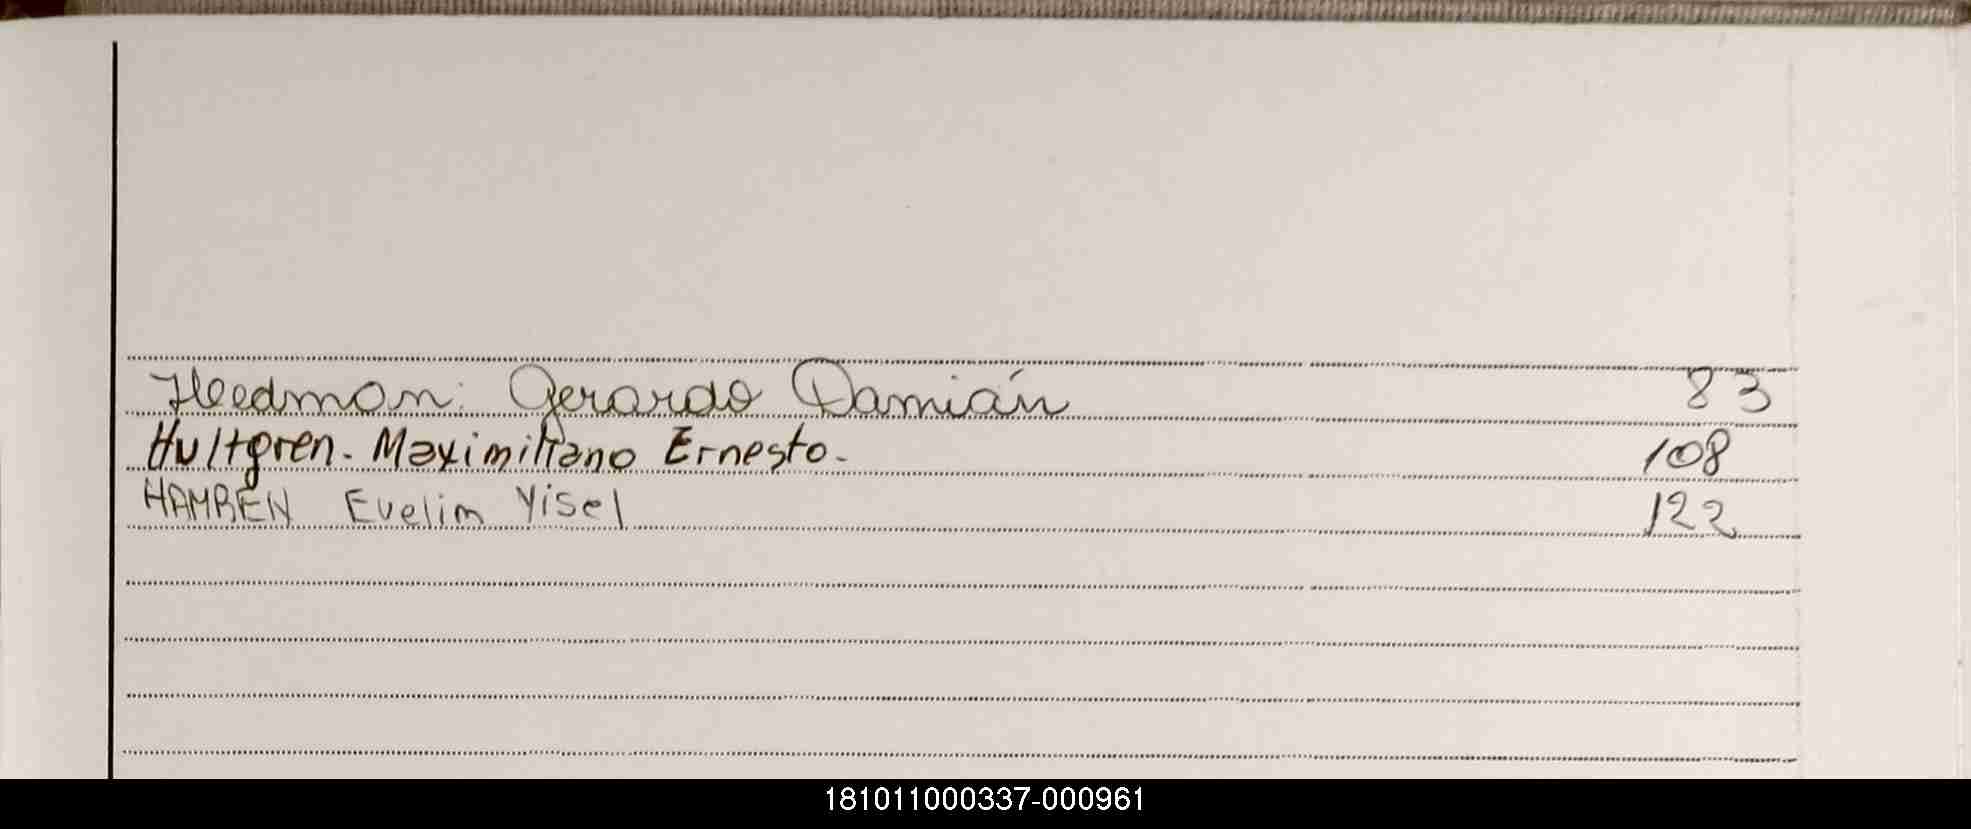 Hedman: Gerardo Damián 83
Hultgren. Maximiliano Ernesto. 108
HAMREN Evelim Yisel 122
181011000337-000961